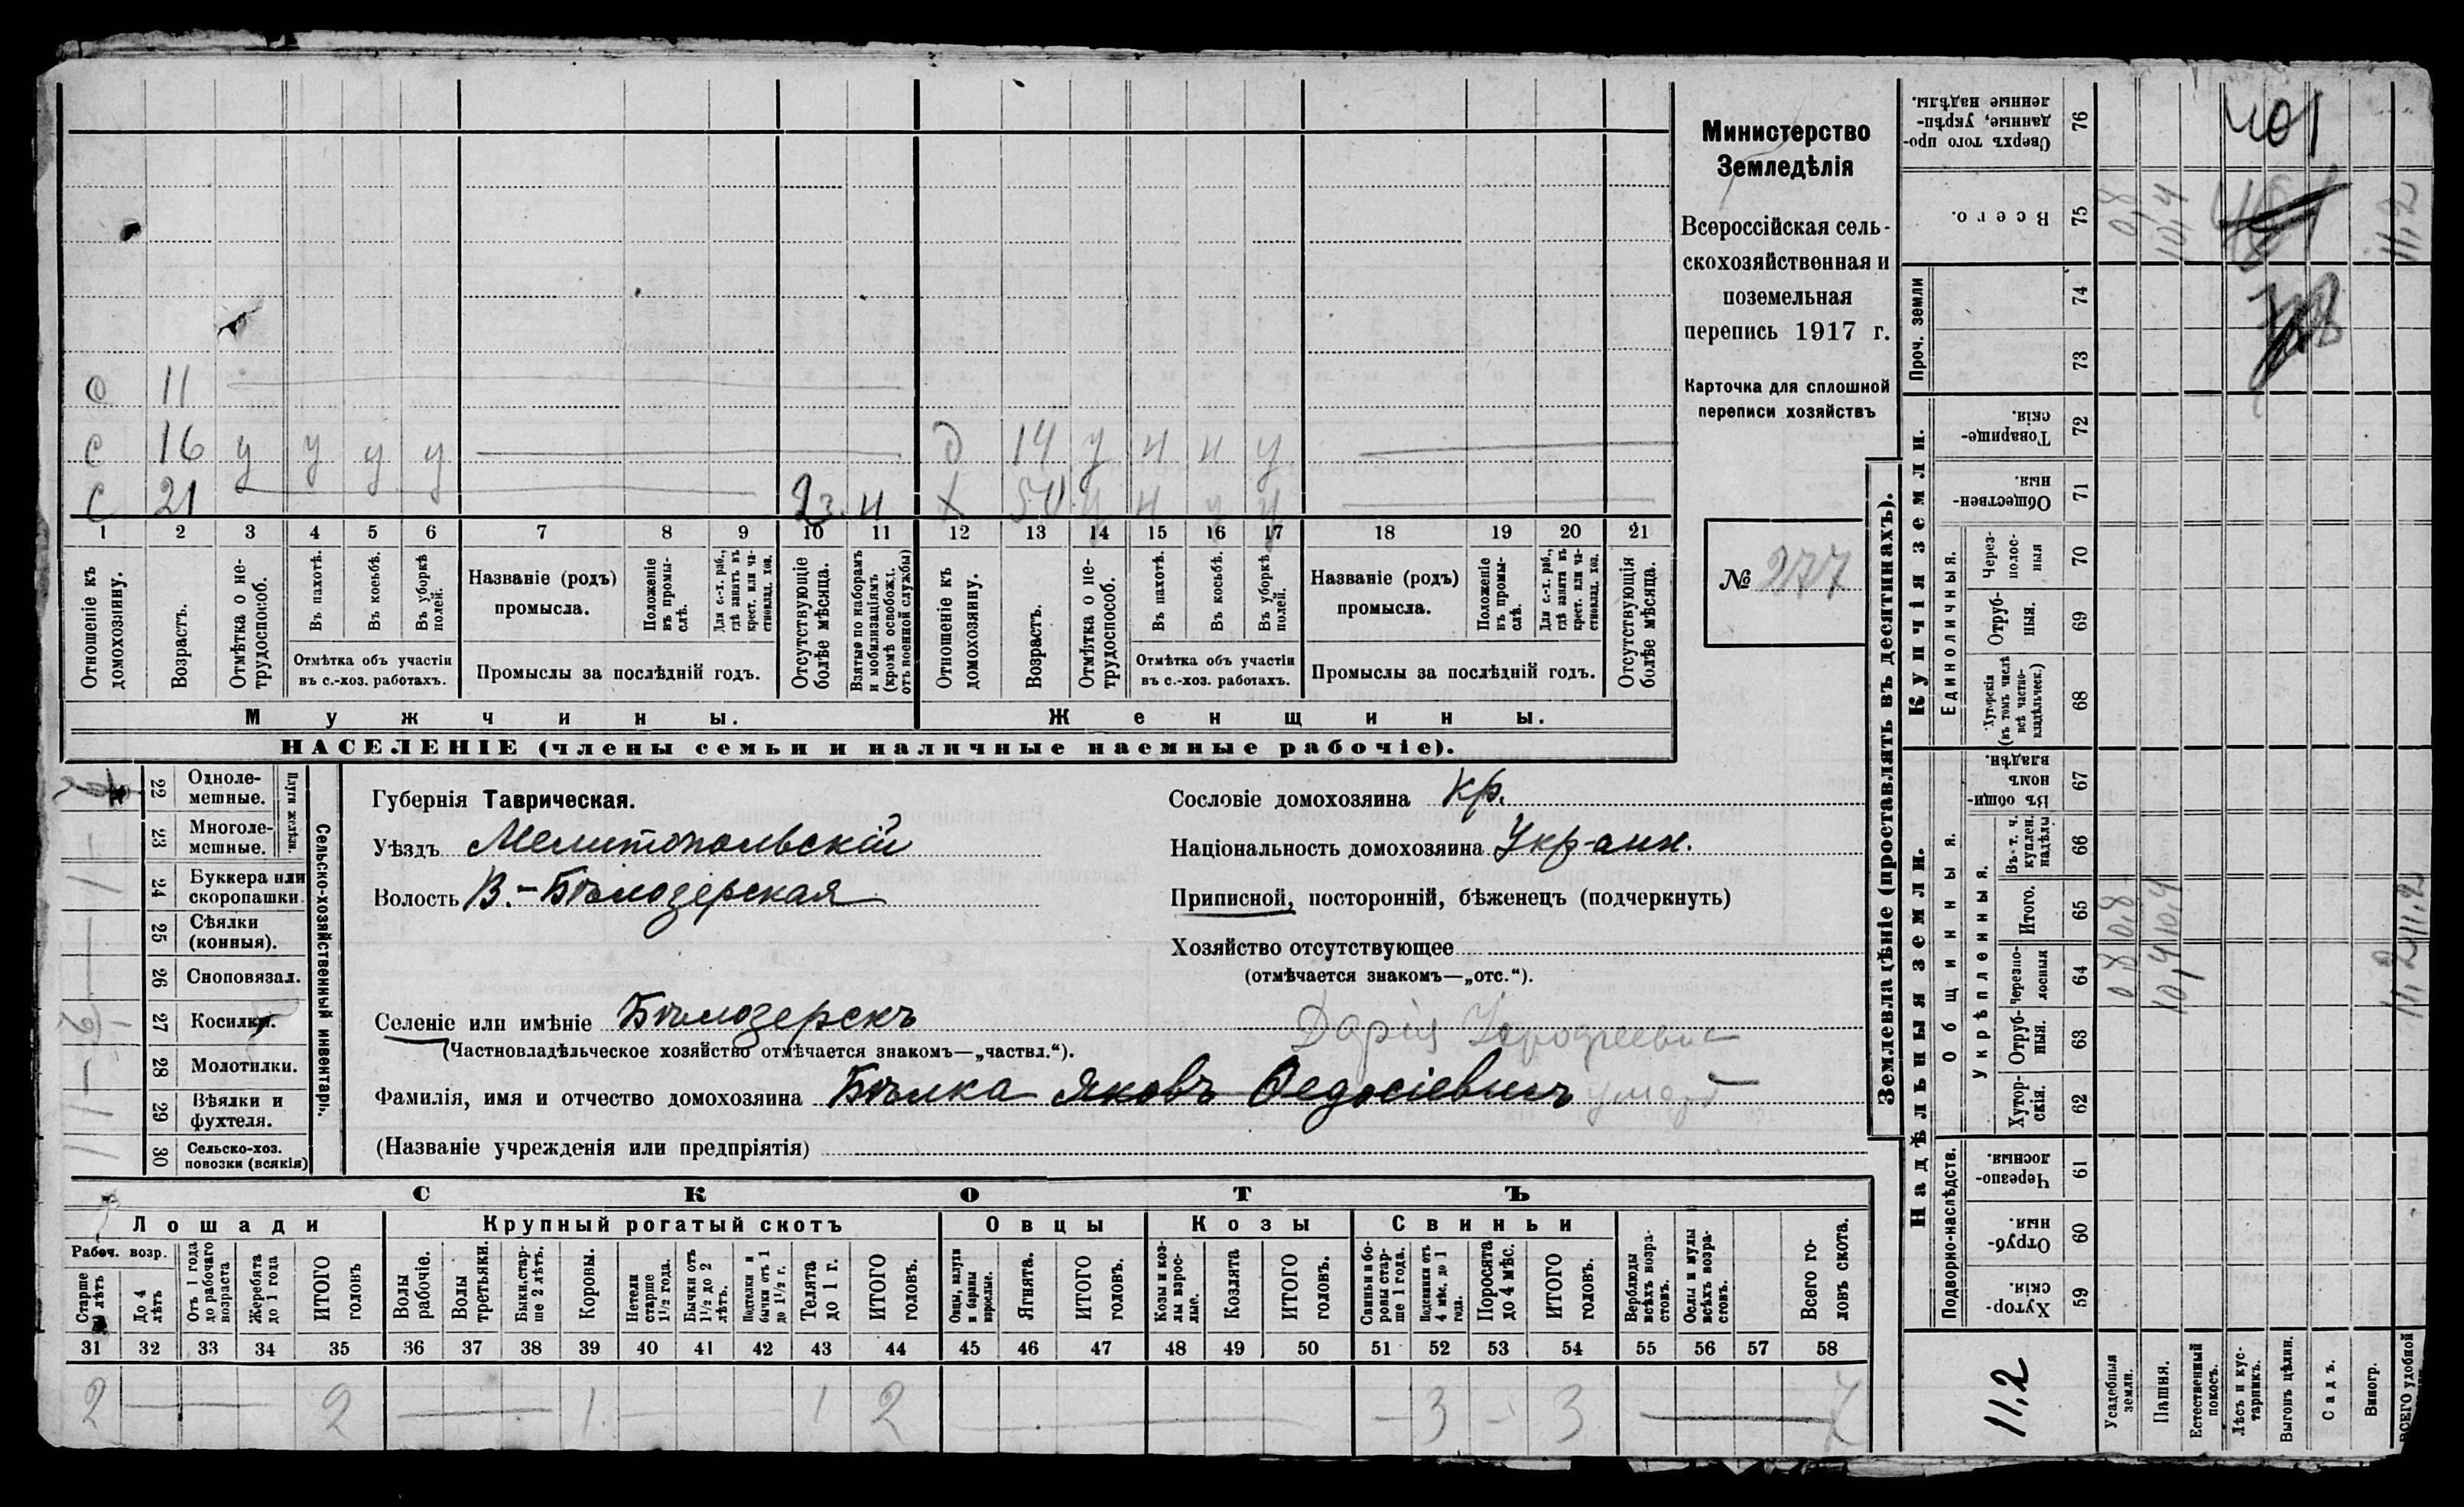 О 11
С 16 у у у у д 14 у н н у
С 21 Вз. н х 50 у н у у
1 2 3 4 5 6 7 8 9 10 11 12 13 14 15 16 17 18 19 20 21
Отношеніе къ домохозяину.
Возрастъ.
Отмѣтка о не-трудоспособ.
Въ пахотѣ.
Въ косьбѣ.
Въ уборкѣ полей.
Отмѣтка объ участіи
въ с.-хоз. работахъ.
Названіе (родъ)
промысла.
Положеніе въ промы-слѣ.
Для с.-х. раб., гдѣ занятъ въ крест. или ча-стновлад. хоз.
Промыслы за послѣдній годъ.
Отсутствующіе болѣе мѣсяца.
Взятые по наборамъ и мобилизаціямъ (кромѣ освобожд. отъ военной службы)
Отношеніе къ домохозяину.
Возрастъ.
Отмѣтка о не-трудоспособ.
Въ пахотѣ.
Въ косьбѣ.
Въ уборкѣ полей.
Отмѣтка объ участіи
въ с.-хоз. работахъ.
Названіе (родъ)
промысла.
Положеніе въ промы-слѣ.
Для с.-х. раб., гдѣ занята въ крест. или ча-стновлад. хоз.
Промыслы за послѣдній годъ.
Отсутствующія болѣе мѣсяца.
Мужчины.
Женщины.
НАСЕЛЕНІЕ (члены семьи и наличные наемные рабочіе).
Министерство
Земледѣлія
Всероссійская сель-
скохозяйственная и
поземельная
перепись 1917 г.
Карточка для сплошной
переписи хозяйствъ
№ 277
Сельско-хозяйственный инвентарь.
Плуги желѣзн.
22 Одноле-мешные.
23 Многоле-мешные.
24 Буккера или скоропашки.
25 Сѣялки (конныя).
26 Сноповязал.
27 Косилки.
28 Молотилки.
29 Вѣялки и фухтеля.
30 Сельско-хоз. повозки (всякія)
Губернія Таврическая.
Уѣздъ Мелитопольскій
Волость В.-Бѣлозерская
Селеніе или имѣніе Бѣлозерскъ
(Частновладѣльческое хозяйство отмѣчается знакомъ—„частвл.“).
Дарія
Фамилія, имя и отчество домохозяина Бѣлка Яковъ Федосіевичъ умеръ
(Названіе учрежденія или предпріятія)
Сословіе домохозяина кр.
Національность домохозяина Укр-аин.
Приписной, посторонній, бѣженецъ (подчеркнуть)
Хозяйство отсутствующее
(отмѣчается знакомъ—„отс.“).
СКОТЪ
Лошади
Крупный рогатый скотъ
Овцы
Козы
Свиньи
Рабоч. возр.
Старше 4 лѣтъ
До 4 лѣтъ
Отъ 1 года до рабочаго возраста
Жеребята до 1 года
ИТОГО головъ
Волы рабочіе.
Волы третьяки.
Быки стар-ше 2 лѣтъ.
Коровы.
Нетели старше 1½ года.
Бычки отъ 1½ до 2 лѣтъ.
Подтелки и бычки отъ 1 до 1½ г.
Телята до 1 г.
ИТОГО головъ.
Овцы, валухи и бараны взрослые.
Ягнята.
ИТОГО головъ.
Козы и коз-лы взрос-лые.
Козлята
ИТОГО головъ.
Свиньи и бо-ровы стар-ше 1 года.
Подсвинки отъ 4 мѣс. до 1 года.
Поросята до 4 мѣс.
ИТОГО головъ.
Верблюды всѣхъ возра-стовъ.
Ослы и мулы всѣхъ возра-стовъ.
Всего го-ловъ скота.
31 32 33 34 35 36 37 38 39 40 41 42 43 44 45 46 47 48 49 50 51 52 53 54 55 56 57 58
2 — 2 — 1 — 1 2 — — 3 — 3 — 7
Землевладѣніе (проставлять въ десятинахъ).
Купчія земли.
Надѣльныя земли.
Проч. земли
Единоличныя.
Общинныя.
Укрѣпленныя.
Подворно-наслѣдств.
Сверхъ того про-данные, укрѣп-ленные надѣлы. 76
Всего. 75
74
73
Товарище-скія. 72
Обществен-ныя. 71
Через-полос-ныя 70
Отруб-ныя. 69
Хуторскія (въ томъ числѣ всѣ частно-владѣльческ.) 68
Въ общи-номъ владѣн. 67
Въ т. ч. куплен. надѣлы 66
Итого. 65
Черезпо-лосныя 64
Отруб-ныя. 63
Хутор-скія. 62
Черезпо-лосныя. 61
Отруб-ныя. 60
Хутор-скія. 59
401
0,8
10,4
11,2
0,8 0,8
10,4 10,4
11,2 11,2
11,2
Усадебныя земли.
Пашня.
Естественный покосъ.
Лѣсъ и кус-тарникъ.
Выгонъ цѣлин.
Садъ.
Виногр.
ВСЕГО удобной